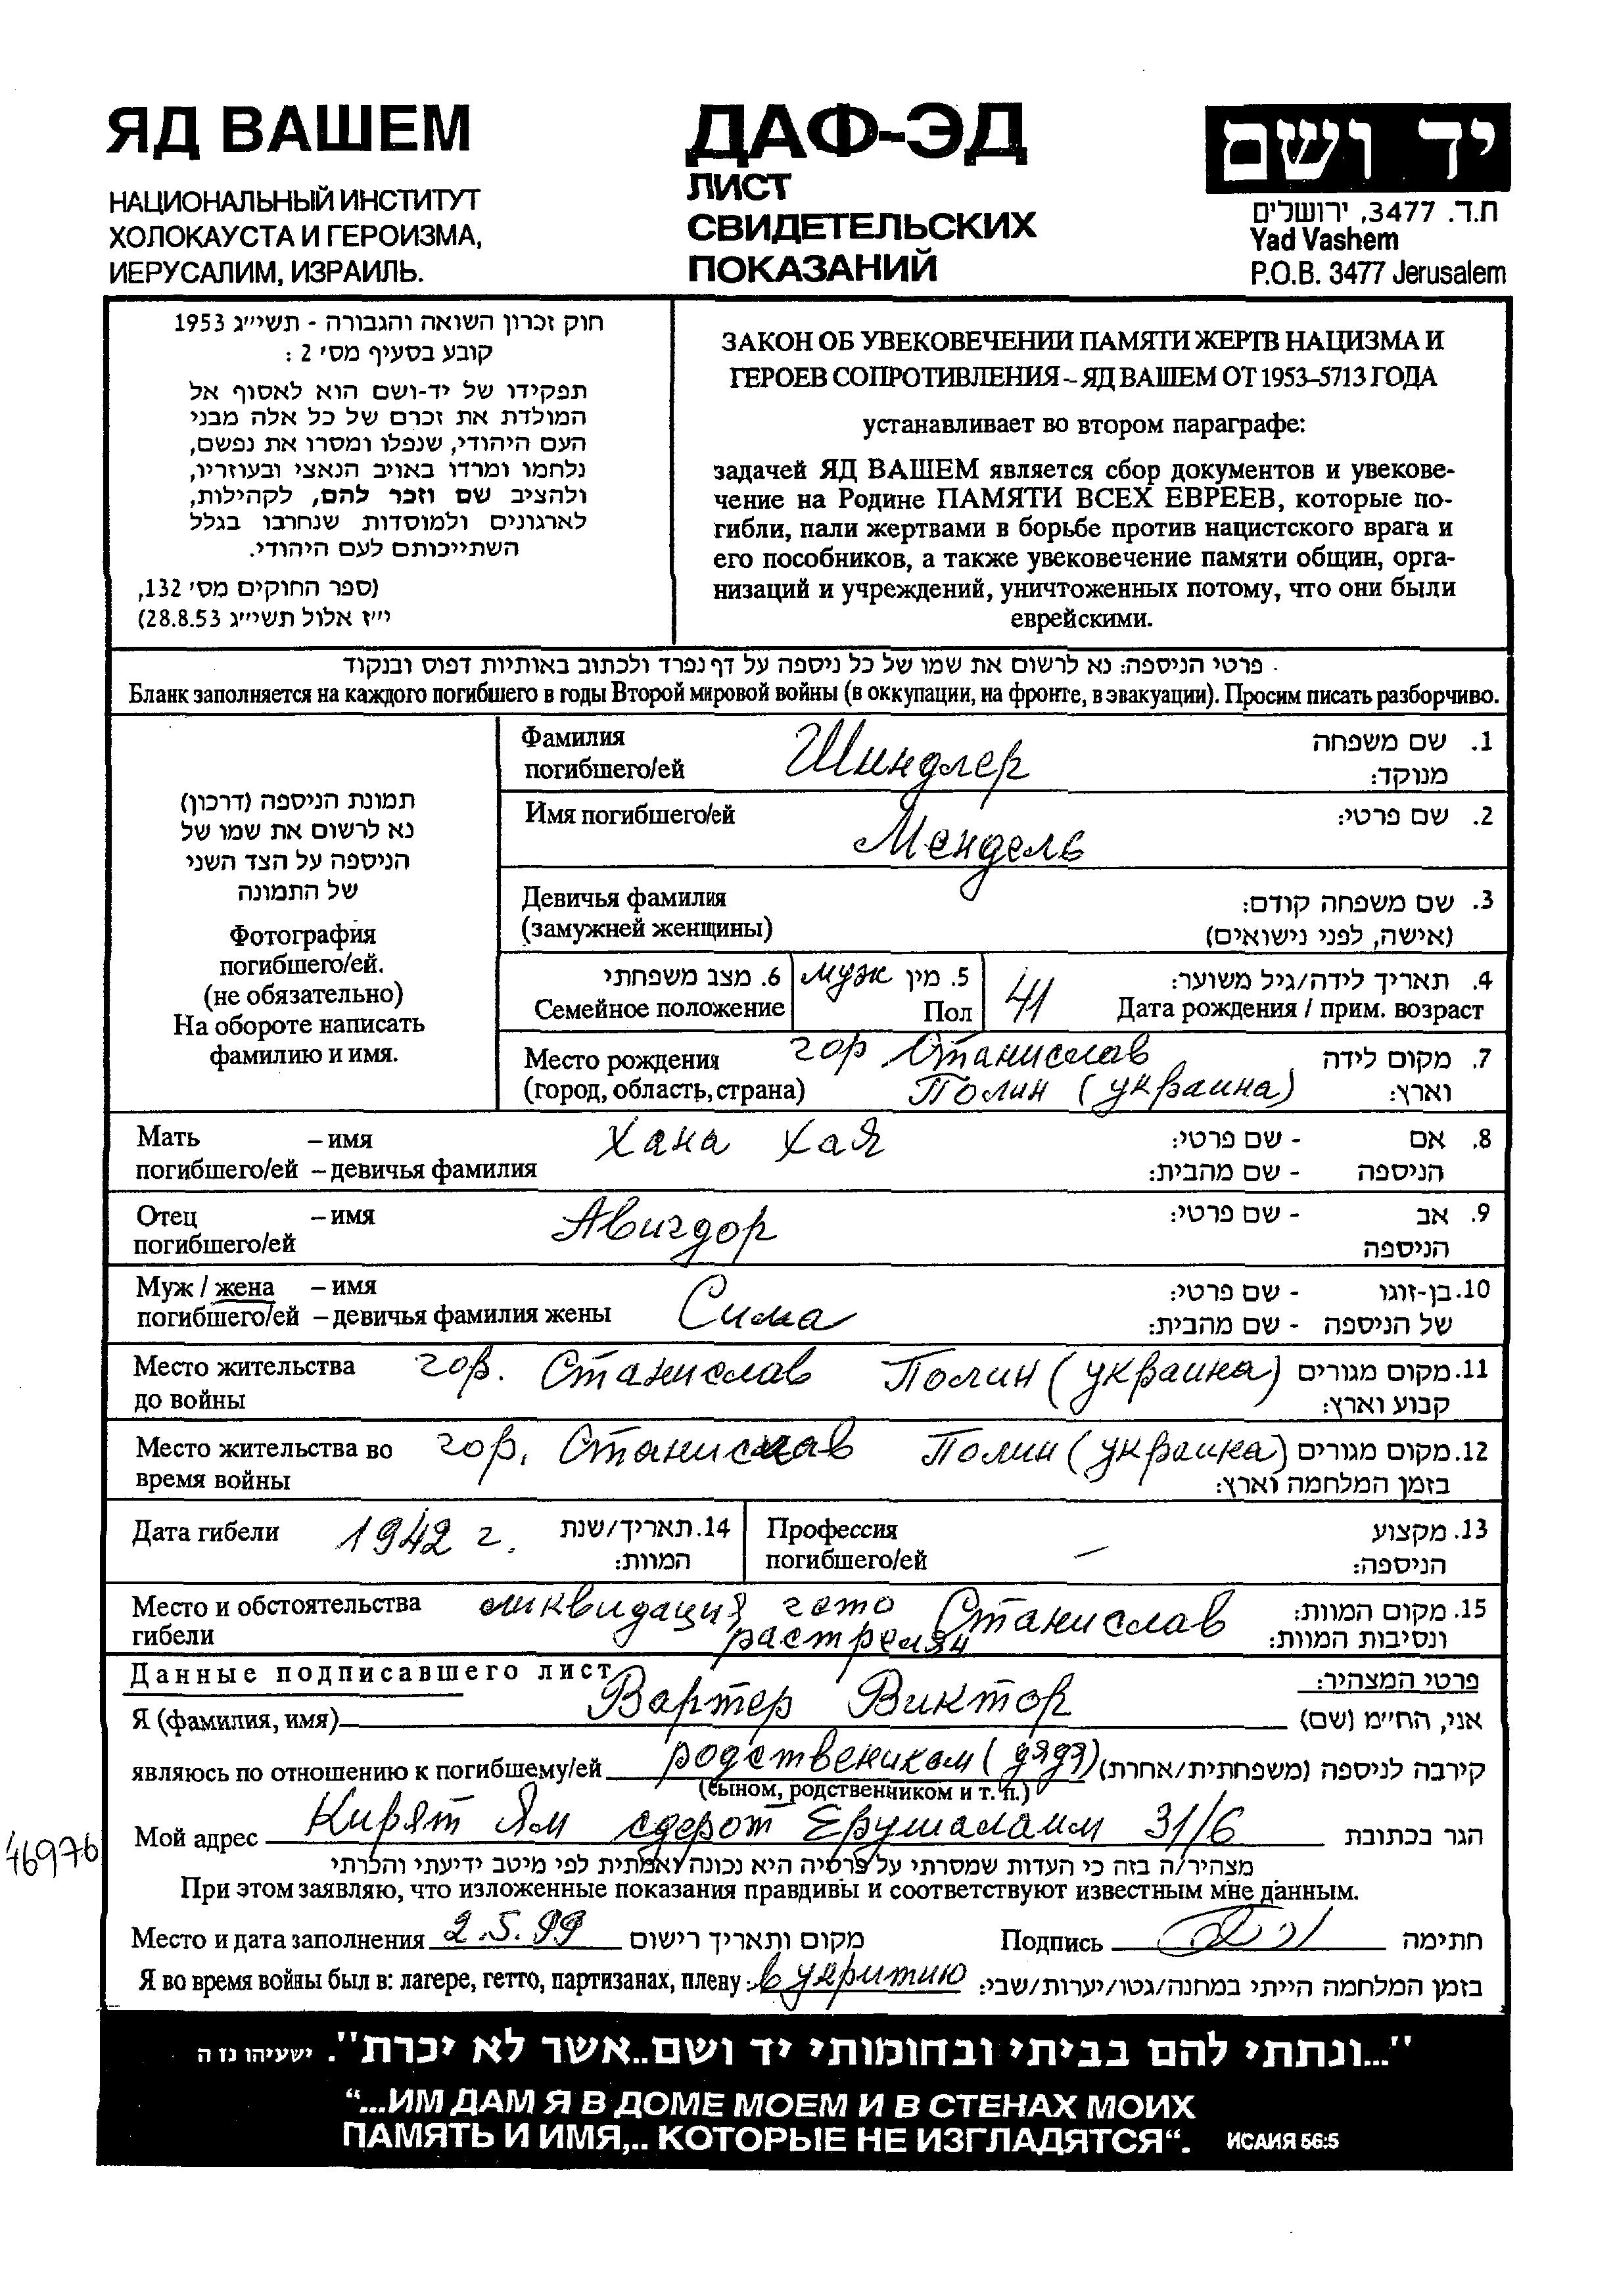 ЯД ВАШЕМ
НАЦИОНАЛЬНЫЙ ИНСТИТУТ
ХОЛОКАУСТА И ГЕРОИЗМА,
ИЕРУСАЛИМ, ИЗРАИЛЬ.
ДАФ-ЭД
ЛИСТ
СВИДЕТЕЛЬСКИХ
ПОКАЗАНИЙ
יד ושם
ת.ד. 3477, ירושלים
Yad Vashem
P.O.B. 3477 Jerusalem
חוק זכרון השואה והגבורה - תשי״ג 1953
קובע בסעיף מס׳ 2 :
תפקידו של יד-ושם הוא לאסוף אל
המולדת את זכרם של כל אלה מבני
העם היהודי, שנפלו ומסרו את נפשם,
נלחמו ומרדו באויב הנאצי ובעוזריו,
ולהציב שם וזכר להם, לקהילות,
לארגונים ולמוסדות שנחרבו בגלל
השתייכותם לעם היהודי.
(ספר החוקים מס׳ 132,
י״ז אלול תשי״ג 28.8.53)
ЗАКОН ОБ УВЕКОВЕЧЕНИИ ПАМЯТИ ЖЕРТВ НАЦИЗМА И
ГЕРОЕВ СОПРОТИВЛЕНИЯ – ЯД ВАШЕМ ОТ 1953–5713 ГОДА
устанавливает во втором параграфе:
задачей ЯД ВАШЕМ является сбор документов и увекове-
чение на Родине ПАМЯТИ ВСЕХ ЕВРЕЕВ, которые по-
гибли, пали жертвами в борьбе против нацистского врага и
его пособников, а также увековечение памяти общин, орга-
низаций и учреждений, уничтоженных потому, что они были
еврейскими.
פרטי הניספה: נא לרשום את שמו של כל ניספה על דף נפרד ולכתוב באותיות דפוס ובנקוד
Бланк заполняется на каждого погибшего в годы Второй мировой войны (в оккупации, на фронте, в эвакуации). Просим писать разборчиво.
תמונת הניספה (דרכון)
נא לרשום את שמו של
הניספה על הצד השני
של התמונה
Фотография
погибшего/ей.
(не обязательно)
На обороте написать
фамилию и имя.
Фамилия Шиндлер 1. שם משפחה
погибшего/ей מנוקד:
Имя погибшего/ей Мендель 2. שם פרטי:
Девичья фамилия 3. שם משפחה קודם:
(замужней женщины) (אישה, לפני נישואים)
6. מצב משפחתי муж 5. מין 41 4. תאריך לידה/גיל משוער:
Семейное положение Пол Дата рождения / прим. возраст
Место рождения гор Станислав 7. מקום לידה
(город, область, страна) Полин (украина) וארץ:
Мать – имя Хана Хая 8. אם - שם פרטי:
погибшего/ей – девичья фамилия הניספה - שם מהבית:
Отец – имя Авигдор 9. אב - שם פרטי:
погибшего/ей הניספה
Муж / жена – имя Сима 10. בן-זוגו - שם פרטי:
погибшего/ей – девичья фамилия жены של הניספה - שם מהבית:
Место жительства гор. Станислав Полин (украина) 11. מקום מגורים
до войны קבוע וארץ:
Место жительства во гор. Станислав Полин (украина) 12. מקום מגורים
время войны בזמן המלחמה וארץ:
Дата гибели 1942 г. 14. תאריך/שנת Профессия – 13. מקצוע
המוות: погибшего/ей הניספה:
Место и обстоятельства ликвидация гето Станислав 15. מקום המוות:
гибели растрелян ונסיבות המוות:
Данные подписавшего лист פרטי המצהיר:
Я (фамилия, имя) Вартер Виктор אני, הח״מ (שם)
являюсь по отношению к погибшему/ей родствеником (дядя) קירבה לניספה (משפחתית/אחרת)
(сыном, родственником и т. п.)
Мой адрес Кирят Ям сдерот Ерушалаим 31/6 הגר בכתובת
46976
מצהיר/ה בזה כי העדות שמסרתי על פרטיה היא נכונה ואמתית לפי מיטב ידיעתי והכרתי
При этом заявляю, что изложенные показания правдивы и соответствуют известным мне данным.
Место и дата заполнения 2.5.99 מקום ותאריך רישום Подпись חתימה
Я во время войны был в: лагере, гетто, партизанах, плену в укритию בזמן המלחמה הייתי במחנה/גטו/יערות/שבי:
"...ונתתי להם בביתי ובחומותי יד ושם..אשר לא יכרת". ישעיהו נז ה
“...ИМ ДАМ Я В ДОМЕ МОЕМ И В СТЕНАХ МОИХ
ПАМЯТЬ И ИМЯ,.. КОТОРЫЕ НЕ ИЗГЛАДЯТСЯ“. ИСАИЯ 56:5